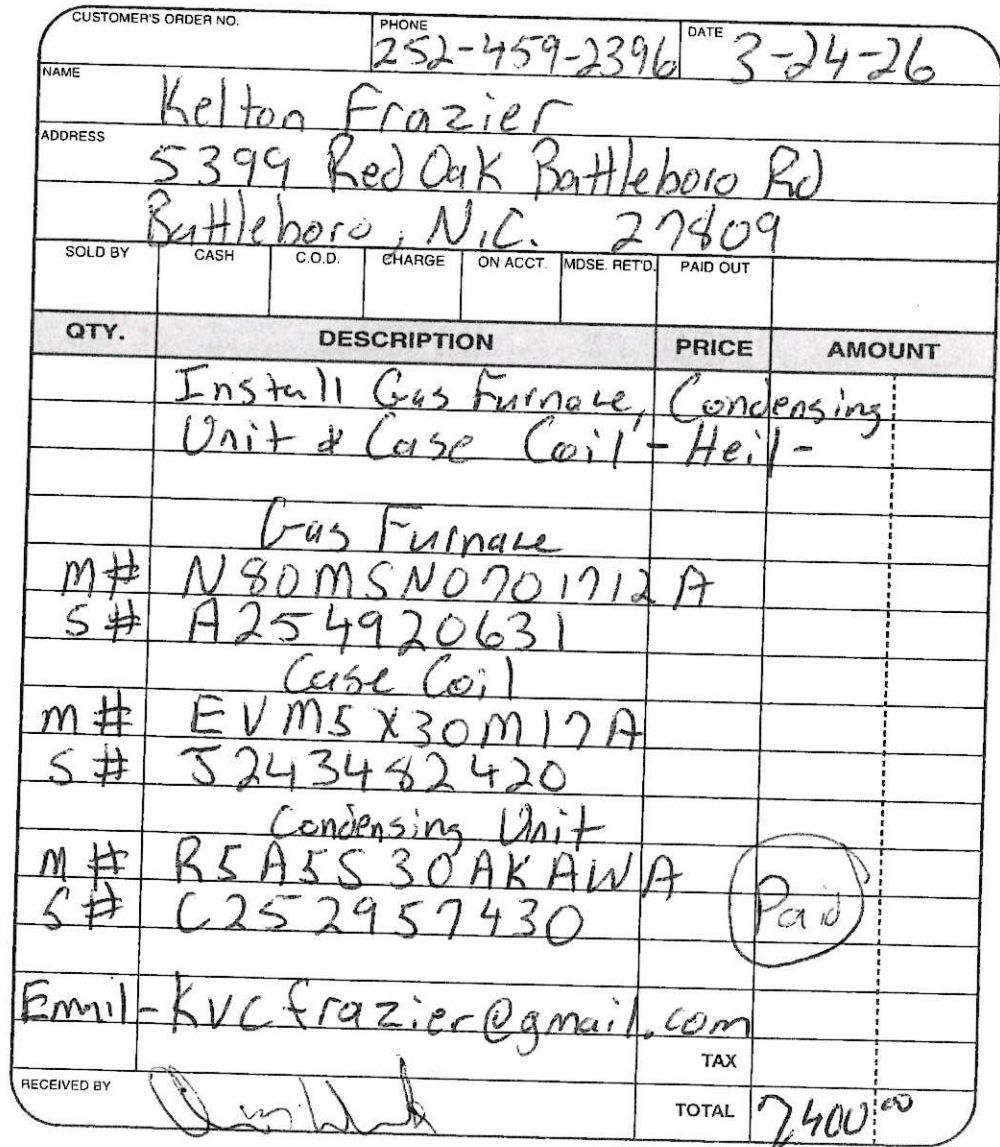 CUSTOMER'S ORDER NO. PHONE 252-459-2396 DATE 3-24-26
NAME Kelton Frazier
ADDRESS 5399 Red Oak Battleboro Rd
Battleboro, N.C. 27809
SOLD BY CASH C.O.D. CHARGE ON ACCT. MDSE. RET'D. PAID OUT
QTY. DESCRIPTION PRICE AMOUNT
Install Gas Furnace, Condensing
Unit & Case Coil - Heil -
Gas Furnace
M# N80MSN0701712A
S# A254920631
Case Coil
M# EVM5X30M17A
S# J243482420
Condensing Unit
M# R5A5S30AKAWA
S# C252957430
Paid
Email - KVCfrazier@gmail.com
TAX
RECEIVED BY TOTAL 7400 00